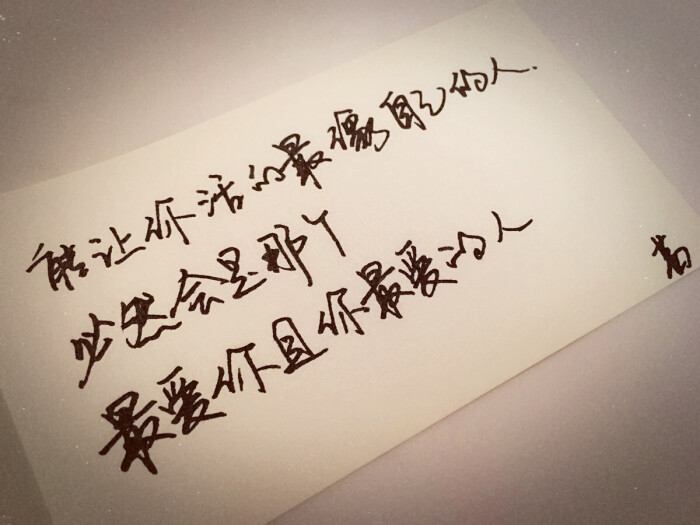 能让你活的最像自己的人.
必然会是那个
最爱你且你最爱的人